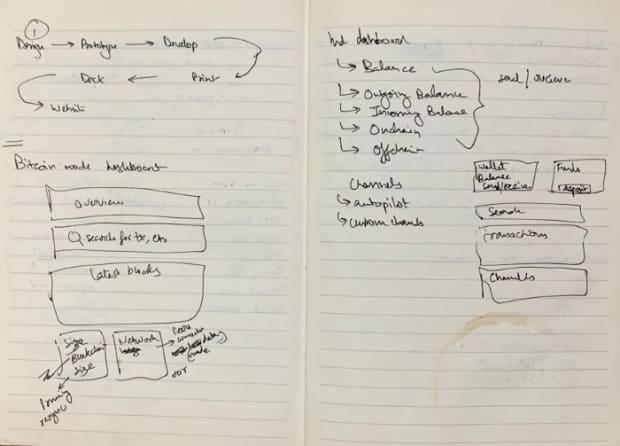 1
Design → Prototype → Develop
Deck ← Print
→ Website
Bitcoin node dashboard
overview
Q search for tx, etc
Latest blocks
Size
Blockchain
Size
Network
Pruning
Peers
connection
TOR
lnd dashboard
↳ Balance
↳ Outgoing Balance
↳ Incoming Balance
↳ Onchain
↳ Offchain
send / receive
Channels
↳ autopilot
↳ custom channels
Wallet
Balance
send/receive
Funds
deposit
Search
Transactions
Channels